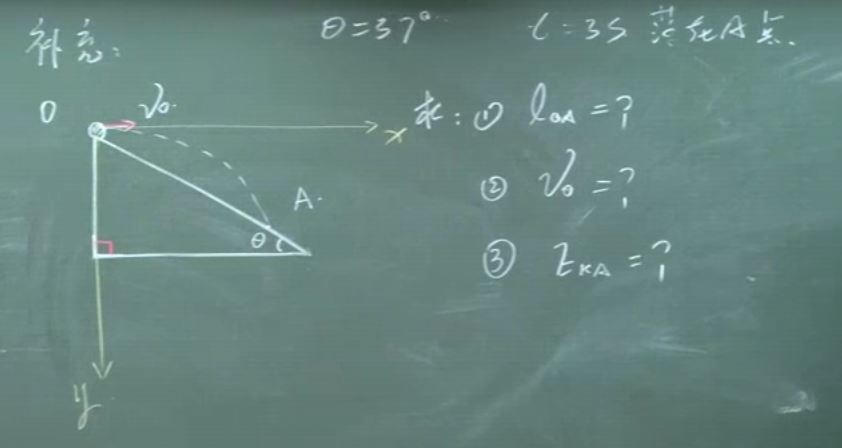 补充:
θ=37° t=3s 落在A点.
O
v₀.
x
求:① l_OA=?
A.
② v₀=?
θ
③ E_KA=?
y